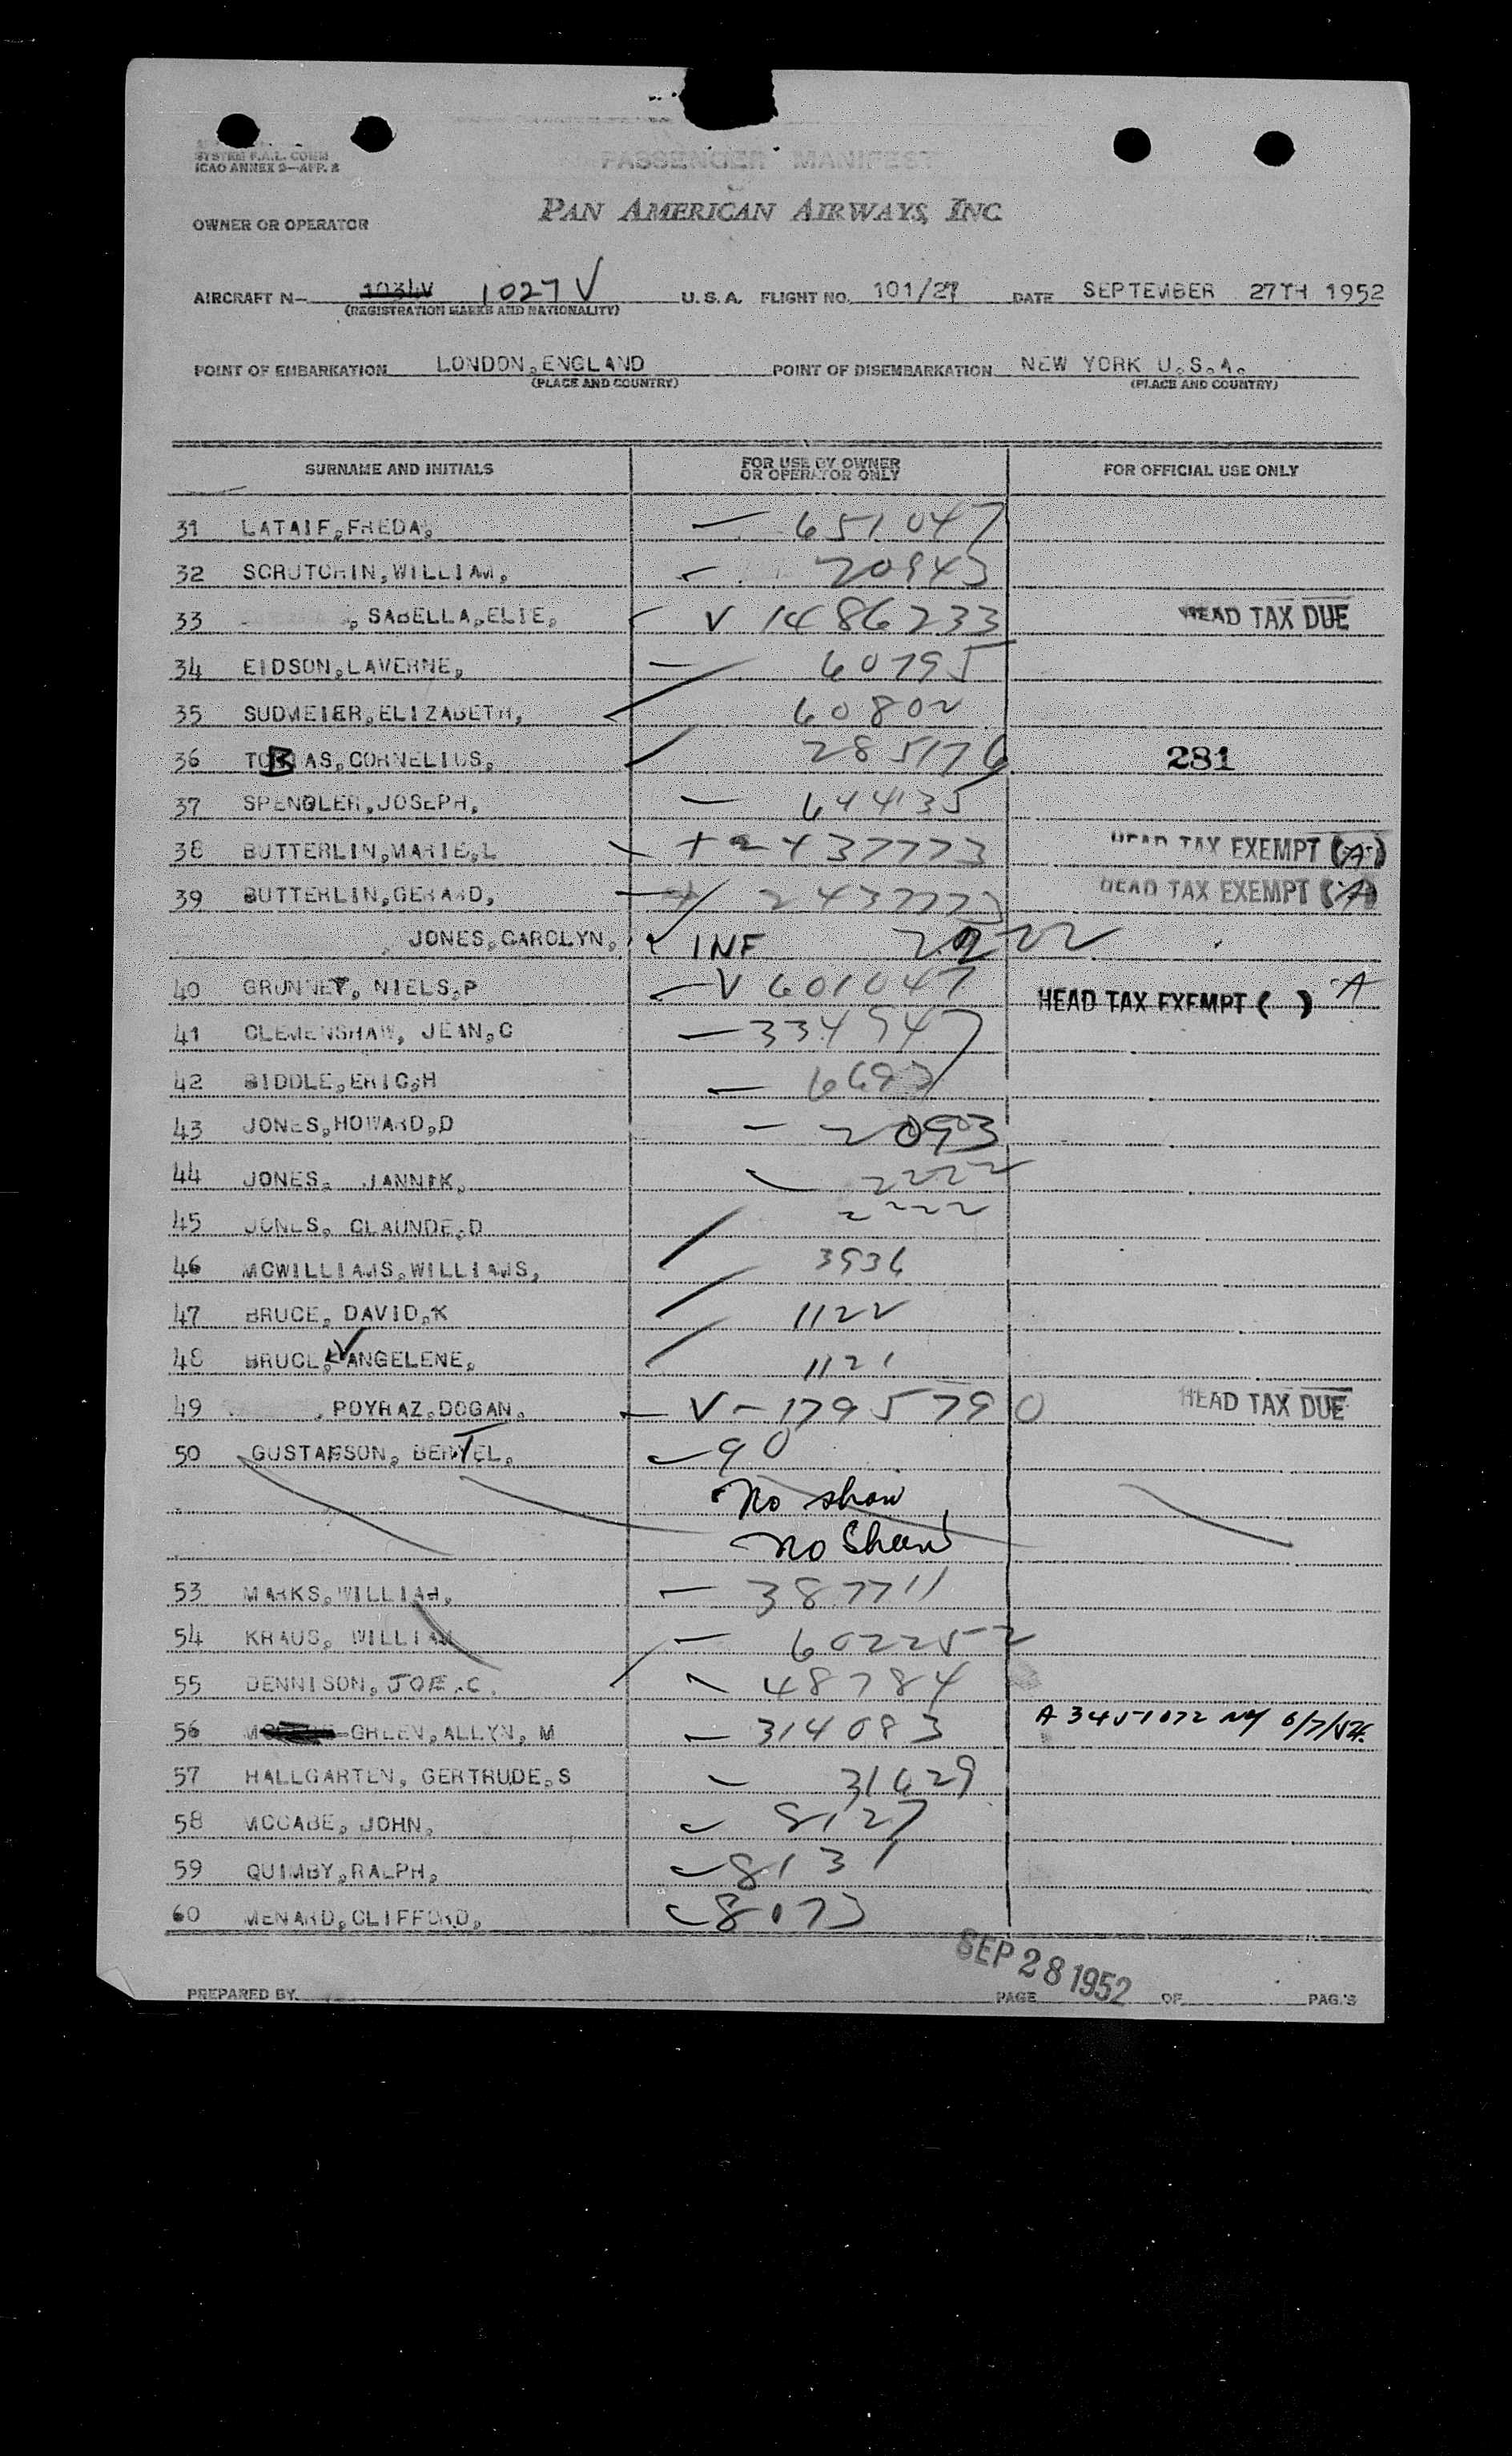 SYSTEM F.A.L. COMM
ICAO ANNEX 9—APP. 2
PASSENGER MANIFEST
PAN AMERICAN AIRWAYS, INC.
OWNER OR OPERATOR
AIRCRAFT N- 1034V 1027V U.S.A. FLIGHT NO. 101/27 DATE SEPTEMBER 27TH 1952
(REGISTRATION MARKS AND NATIONALITY)
POINT OF EMBARKATION LONDON, ENGLAND POINT OF DISEMBARKATION NEW YORK U.S.A.
(PLACE AND COUNTRY) (PLACE AND COUNTRY)
SURNAME AND INITIALS FOR USE BY OWNER OR OPERATOR ONLY FOR OFFICIAL USE ONLY
31 LATAIF, FREDA, — 651047
32 SCRUTCHIN, WILLIAM, 20943
33 , SABELLA, ELIE, V 1486233 HEAD TAX DUE
34 EIDSON, LAVERNE, — 60795
35 SUDMEIER, ELIZABETH, 60802
36 TOBIAS, CORNELIUS, 285176 281
37 SPENGLER, JOSEPH, — 644135
38 BUTTERLIN, MARIE, L + 2437773 HEAD TAX EXEMPT (A)
39 BUTTERLIN, GERARD, 2437773 HEAD TAX EXEMPT (A)
JONES, CAROLYN, INF 2222
40 GRUNNET, NIELS, P V 601047 HEAD TAX EXEMPT ( ) A
41 CLEMENSHAW, JEAN, C — 334947
42 BIDDLE, ERIC, H —
43 JONES, HOWARD, D — 2093
44 JONES, JANNIK, 2222
45 JONES, CLAUNDE, D 2222
46 MCWILLIAMS, WILLIAMS, 3936
47 BRUCE, DAVID, K 1122
48 BRUCE, VANGELENE, 1121
49 , POYRAZ, DOGAN, V — 1795790 HEAD TAX DUE
50 GUSTAFSSON, BERTEL, 90
No show
No Show
53 MARKS, WILLIAH, — 387711
54 KRAUS, WILLIAM — 602252
55 DENNISON, JOE.C. 48784
56 GREEN, ALLYN, M — 314083 A 3451072 NY 6/7/54.
57 HALLGARTEN, GERTRUDE, S 31629
58 MCCABE, JOHN, 8127
59 QUIMBY, RALPH, 8131
60 MENARD, CLIFFORD, 8073
SEP 28 1952
PREPARED BY PAGE OF PAGES